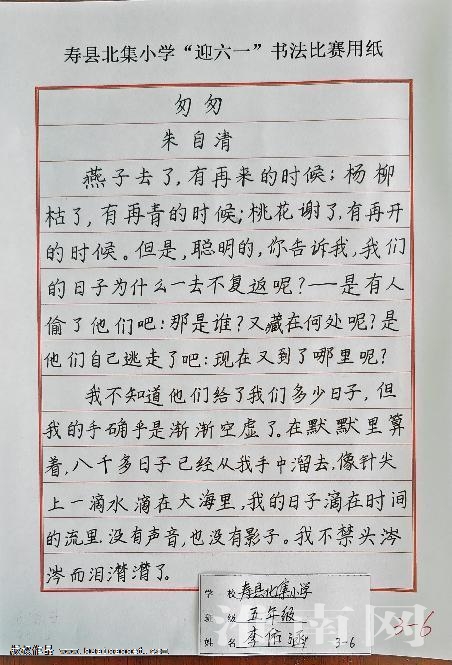 寿县北集小学“迎六一”书法比赛用纸
匆匆
朱自清
燕子去了,有再来的时候;杨柳
枯了,有再青的时候;桃花谢了,有再开
的时候。但是,聪明的,你告诉我,我们
的日子为什么一去不复返呢?——是有人
偷了他们吧:那是谁?又藏在何处呢?是
他们自己逃走了吧:现在又到了哪里呢?
我不知道他们给了我们多少日子,但
我的手确乎是渐渐空虚了。在默默里算
着,八千多日子已经从我手中溜去,像针尖
上一滴水滴在大海里,我的日子滴在时间
的流里.没有声音,也没有影子。我不禁头涔
涔而泪潸潸了。
学校 寿县北集小学
班级 五年级
姓名 李佑
3-6
3-6